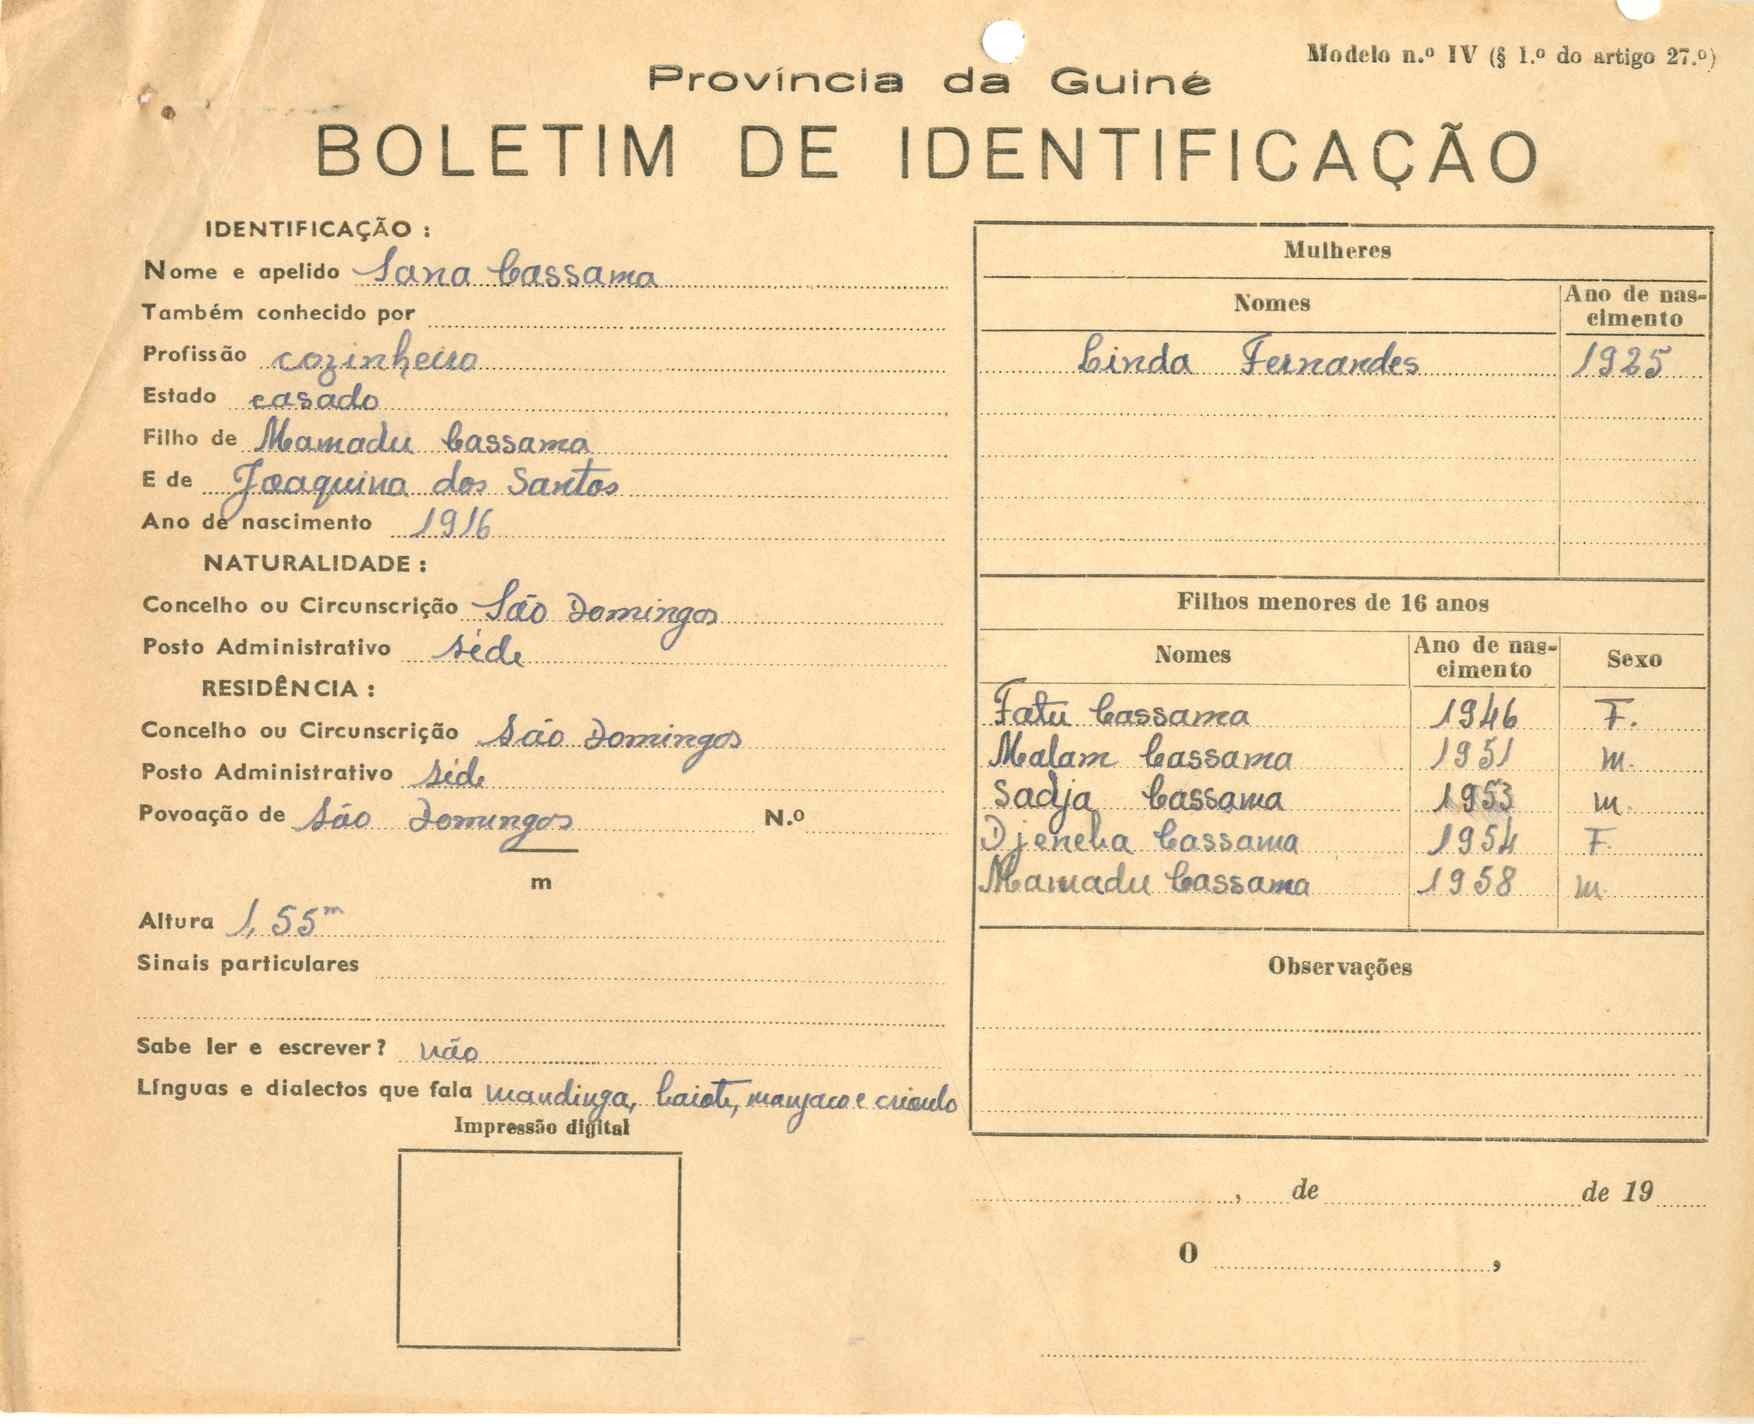 Modelo n.º IV (§ 1.º do artigo 27.º)
Província da Guiné
BOLETIM DE IDENTIFICAÇÃO
IDENTIFICAÇÃO :
Nome e apelido Sana Cassama
Também conhecido por
Profissão cozinheiro
Estado casado
Filho de Mamadu Cassama
E de Joaquina dos Santos
Ano de nascimento 1916
NATURALIDADE :
Concelho ou Circunscrição São Domingos
Posto Administrativo séde
RESIDÊNCIA :
Concelho ou Circunscrição São Domingos
Posto Administrativo séde
Povoação de São Domingos N.º
m
Altura 1,55m
Sinais particulares
Sabe ler e escrever? não
Línguas e dialectos que fala mandinga, baiote, manjaco e crioulo
Impressão digital
Mulheres
Nomes Ano de nas-
cimento
Linda Fernandes 1925
Filhos menores de 16 anos
Nomes Ano de nas-
cimento Sexo
Fatu Cassama 1946 F.
Malam Cassama 1951 m.
Sadja Cassama 1953 m.
Cassama 1954 F.
Mamadu Cassama 1958 m.
Observações
, de de 19
O ,